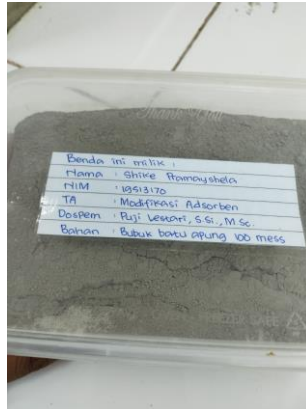 Benda ini milik :
Nama : Shike Pramayshela
NIM : 19513170
TA : Modifikasi Adsorben
Dospem : Puji Lestari, S.Si., M.Sc.
Bahan : Bubuk batu apung 100 mess